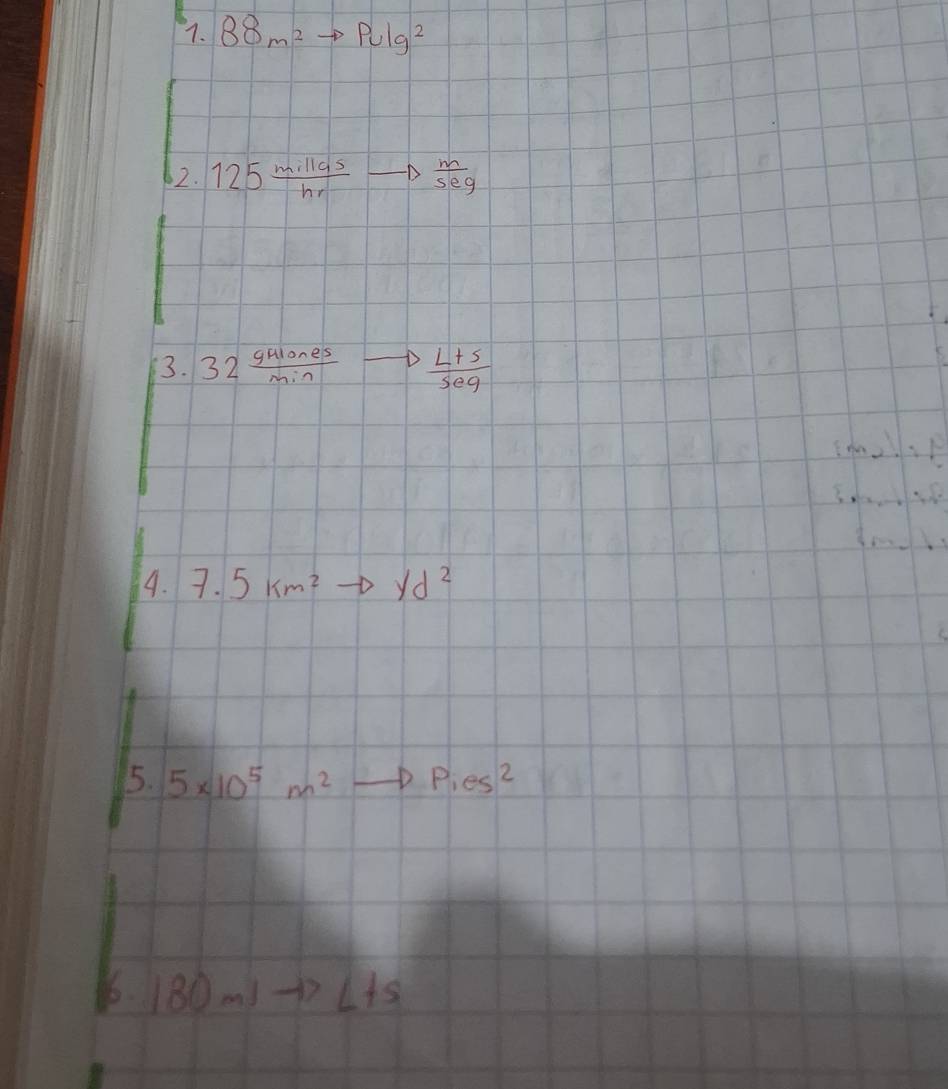 1. 88 m² → Pulg²
2. 125 millas/hr → m/seg
3. 32 galones/min → Lts/seg
4. 7.5 Km² → Yd²
5. 5×10⁵ m² → Pies²
6. 180 ml → Lts